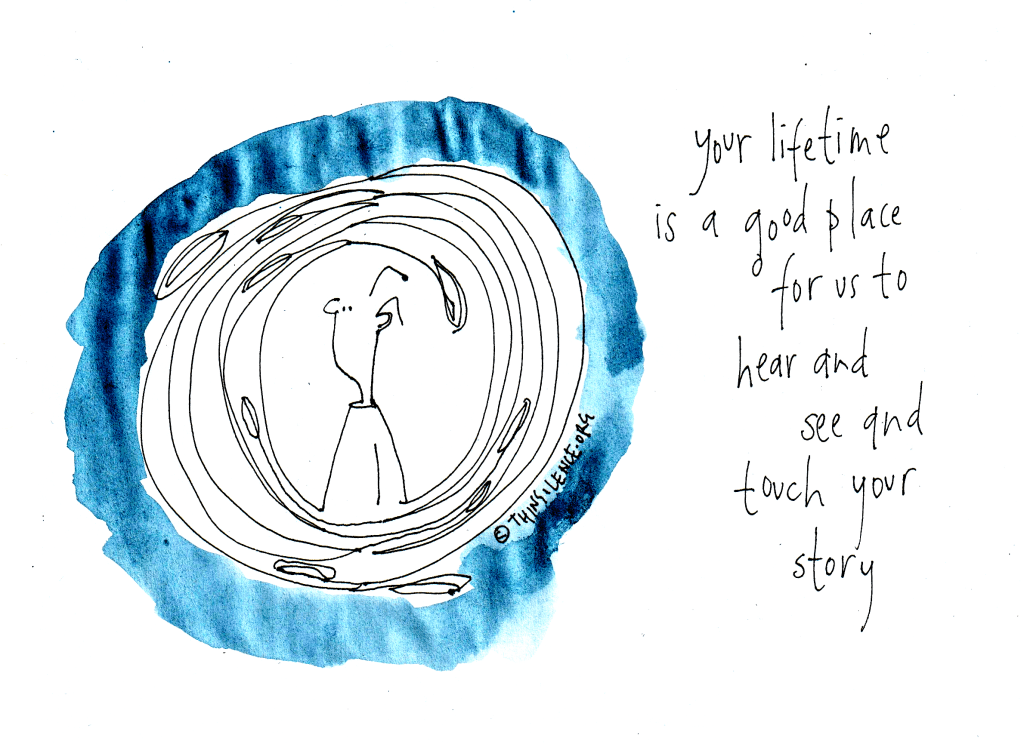 your lifetime
is a good place
for us to
hear and
see and
touch your
story
© THINSILENCE.ORG